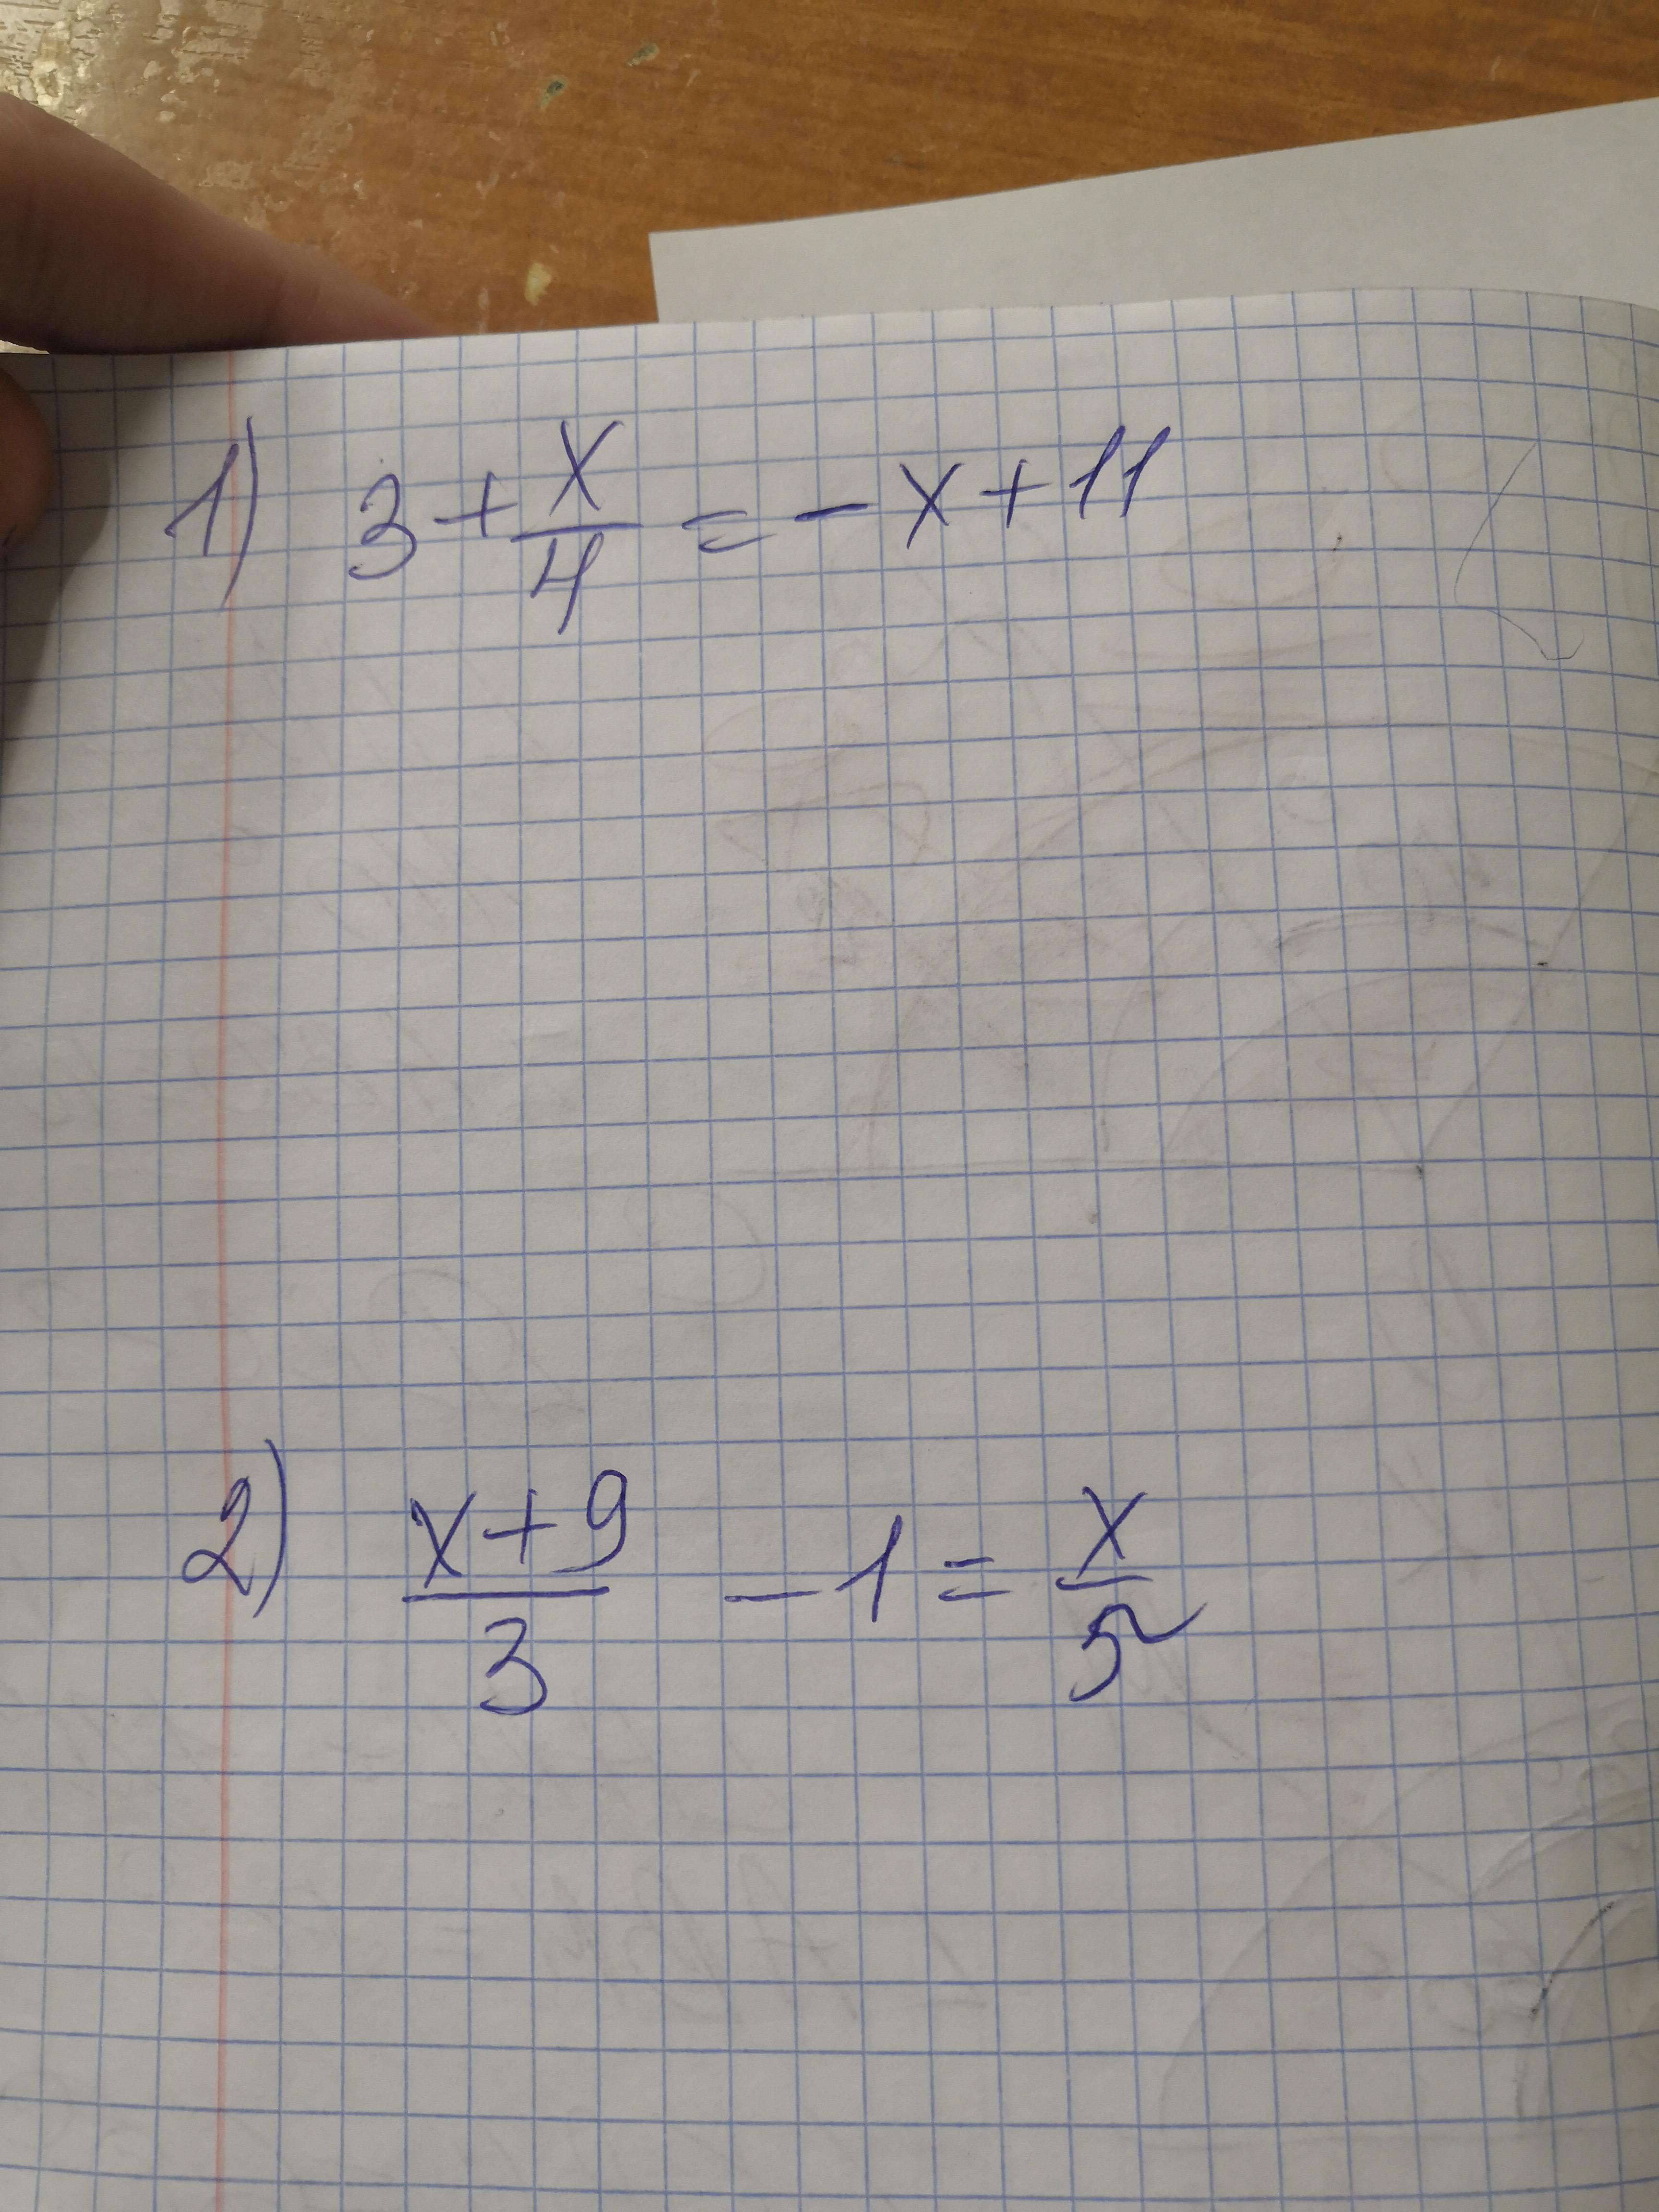 1) 3 + x/4 = - x + 11
2) (x + 9)/3 - 1 = x/5